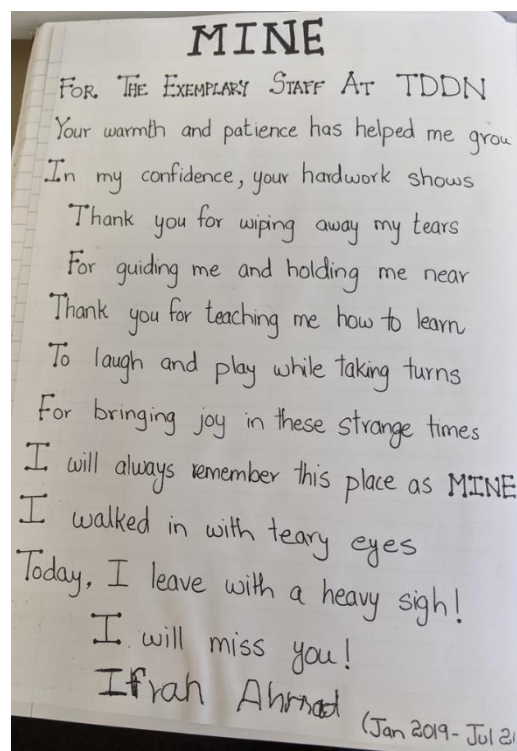 MINE
FOR THE EXEMPLARY STAFF AT TDDN
Your warmth and patience has helped me grow
In my confidence, your hardwork shows
Thank you for wiping away my tears
For guiding me and holding me near
Thank you for teaching me how to learn
To laugh and play while taking turns
For bringing joy in these strange times
I will always remember this place as MINE
I walked in with teary eyes
Today, I leave with a heavy sigh!
I will miss you!
Ifrah Ahmad
(Jan 2019 - Jul 21